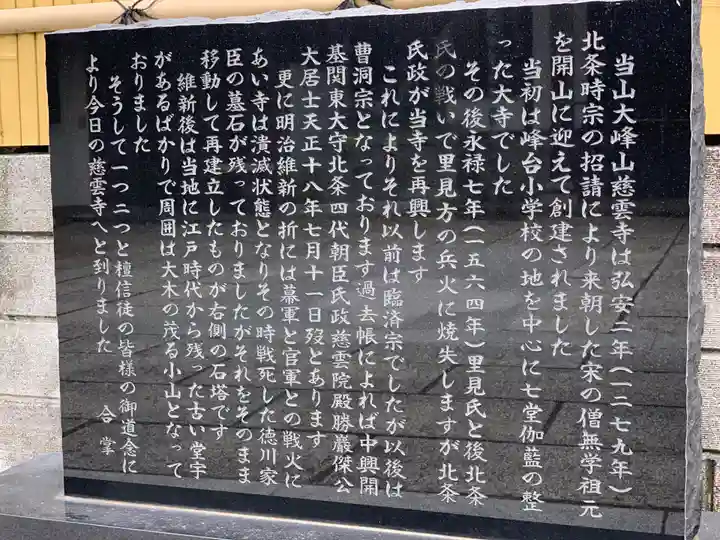 当山大峰山慈雲寺は弘安二年(一二七九年)
北条時宗の招請により来朝した宋の僧無学祖元
を開山に迎えて創建されました
当初は峰台小学校の地を中心に七堂伽藍の整
った大寺でした
その後永禄七年(一五六四年)里見氏と後北条
氏の戦いで里見方の兵火に焼失しますが北条
氏政が当寺を再興します
これによりそれ以前は臨済宗でしたが以後は
曹洞宗となっております過去帳によれば中興開
基関東大守北条四代朝臣氏政慈雲院殿勝巖傑公
大居士天正十八年七月十一日歿とあります
更に明治維新の折には幕軍と官軍との戦火に
あい寺は潰滅状態となりその時戦死した徳川家
臣の墓石が残っておりましたがそれをそのまま
移動して再建立したものが右側の石塔です
維新後は当地に江戸時代から残った古い堂宇
があるばかりで周囲は大木の茂る小山となって
おりました
そうして一つ二つと檀信徒の皆様の御道念に
より今日の慈雲寺へと到りました
合掌